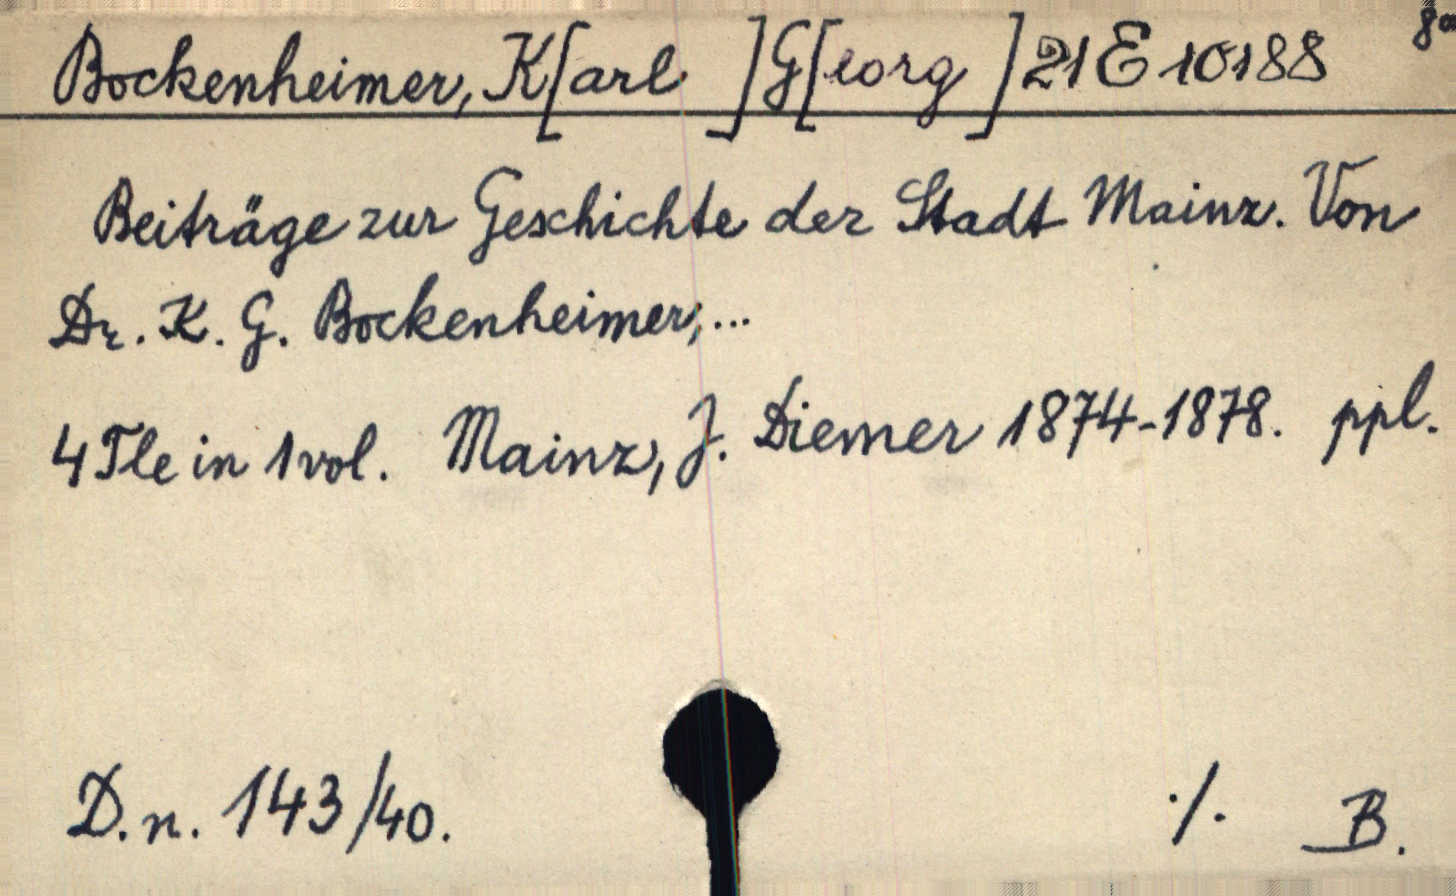 Bockenheimer, K[arl ] G[eorg ] 21 E 10188
Beiträge zur Geschichte der Stadt Mainz. Von
Dr. K. G. Bockenheimer, ...
4 Tle in 1 vol. Mainz, J. Diemer 1874-1878. ppl.
D. n. 143/40. ·/. B.